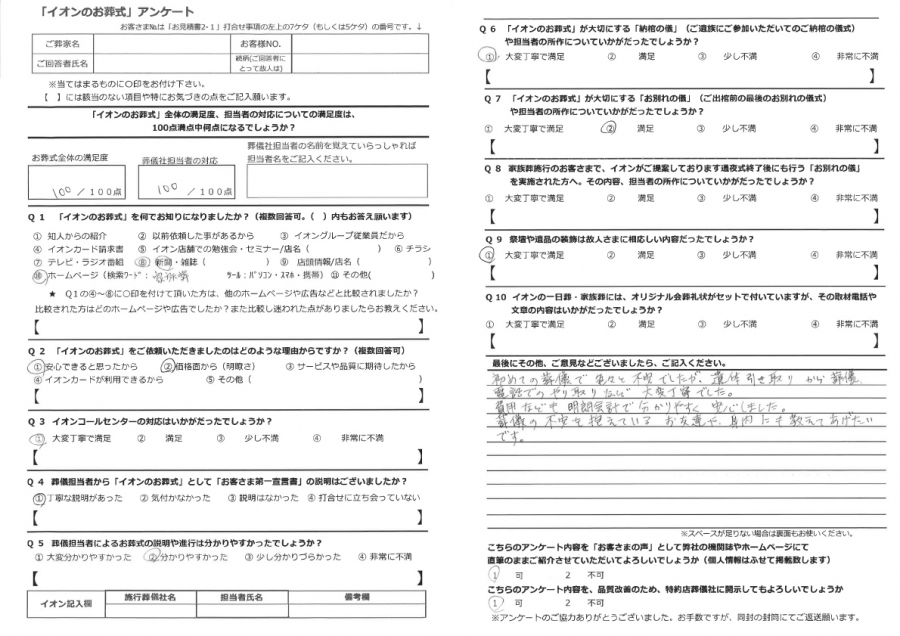 「イオンのお葬式」アンケート
お客さま№は「お見積書2-１」打合せ事項の左上の7ケタ（もしくは5ケタ）の番号です。↓
ご葬家名 お客様NO.
ご回答者氏名 続柄(ご回答者にとって故人は)
※当てはまるものに〇印をお付け下さい。
【　】には該当のない項目や特にお気づきの点をご記入願います。
「イオンのお葬式」全体の満足度、担当者の対応についての満足度は、
100点満点中何点になるでしょうか？
お葬式全体の満足度
葬儀社担当者の対応
葬儀社担当者の名前を覚えていらっしゃれば
担当者名をご記入ください。
100 / 100点
100 / 100点
Q 1 「イオンのお葬式」を何でお知りになりましたか？（複数回答可。（　）内もお答え願います）
① 知人からの紹介 ② 以前依頼した事があるから ③ イオングループ従業員だから
④ イオンカード請求書 ⑤ イオン店舗での勉強会・セミナー/店名（　） ⑥ チラシ
⑦ テレビ・ラジオ番組 ⑧ 新聞・雑誌（　） ⑨ 店頭情報/店名（　）
⑩ ホームページ（検索ワード： ツール：パソコン・スマホ・携帯） ⑪ その他(　)
★ Q1の④～⑧に〇印を付けて頂いた方は、他のホームページや広告などと比較されましたか？
比較された方はどのホームページや広告でしたか？また比較し迷われた点がありましたらお教えください。
【　】
Q 2 「イオンのお葬式」をご依頼いただきましたのはどのような理由からですか？（複数回答可）
①安心できると思ったから ②価格面から（明瞭さ） ③ サービスや品質に期待したから
④ イオンカードが利用できるから ⑤ その他（　）
【　】
Q 3 イオンコールセンターの対応はいかがだったでしょうか？
① 大変丁寧で満足 ② 満足 ③ 少し不満 ④ 非常に不満
【　】
Q 4 葬儀担当者から「イオンのお葬式」として「お客さま第一宣言書」の説明はございましたか？
①丁寧な説明があった ② 気付かなかった ③ 説明はなかった ④ 打合せに立ち会っていない
【　】
Q 5 葬儀担当者によるお葬式の説明や進行は分かりやすかったでしょうか？
① 大変分かりやすかった ②分かりやすかった ③ 少し分かりづらかった ④ 非常に不満
【　】
イオン記入欄 施行葬儀社名 担当者氏名 備考欄
Q 6 「イオンのお葬式」が大切にする「納棺の儀」（ご遺族にご参加いただいてのご納棺の儀式）
や担当者の所作についていかがだったでしょうか？
① 大変丁寧で満足 ② 満足 ③ 少し不満 ④ 非常に不満
【　】
Q 7 「イオンのお葬式」が大切にする「お別れの儀」（ご出棺前の最後のお別れの儀式）
や担当者の所作についていかがだったでしょうか？
① 大変丁寧で満足 ② 満足 ③ 少し不満 ④ 非常に不満
【　】
Q 8 家族葬施行のお客さまで、イオンがご提案しております通夜式終了後にも行う「お別れの儀」
を実施された方へ。その内容、担当者の所作についていかがだったでしょうか？
① 大変丁寧で満足 ② 満足 ③ 少し不満 ④ 非常に不満
【　】
Q 9 祭壇や遺品の装飾は故人さまに相応しい内容だったでしょうか？
① 大変丁寧で満足 ② 満足 ③ 少し不満 ④ 非常に不満
【　】
Q 10 イオンの一日葬・家族葬には、オリジナル会葬礼状がセットで付いていますが、その取材電話や
文章の内容はいかがだったでしょうか？
① 大変丁寧で満足 ② 満足 ③ 少し不満 ④ 非常に不満
【　】
最後にその他、ご意見などございましたら、ご記入ください。
初めての葬儀で色々と不安でしたが、遺体引き取りから葬儀、
電話でのやり取りなど大変丁寧でした。
費用なども明朗会計で分かりやすく安心しました。
葬儀の不安を抱えているお友達や、身内にも教えてあげたい
です。
※スペースが足りない場合は裏面もお使いください。
こちらのアンケート内容を「お客さまの声」として弊社の機関誌やホームページにて
直筆のままご紹介させていただいてよろしいでしょうか（個人情報はふせて掲載致します）
1 可 2 不可
こちらのアンケート内容を、品質改善のため、特約店葬儀社に開示してもよろしいでしょうか
1 可 2 不可
※アンケートのご協力ありがとうございました。お手数ですが、同封の封筒にてご返送願います。